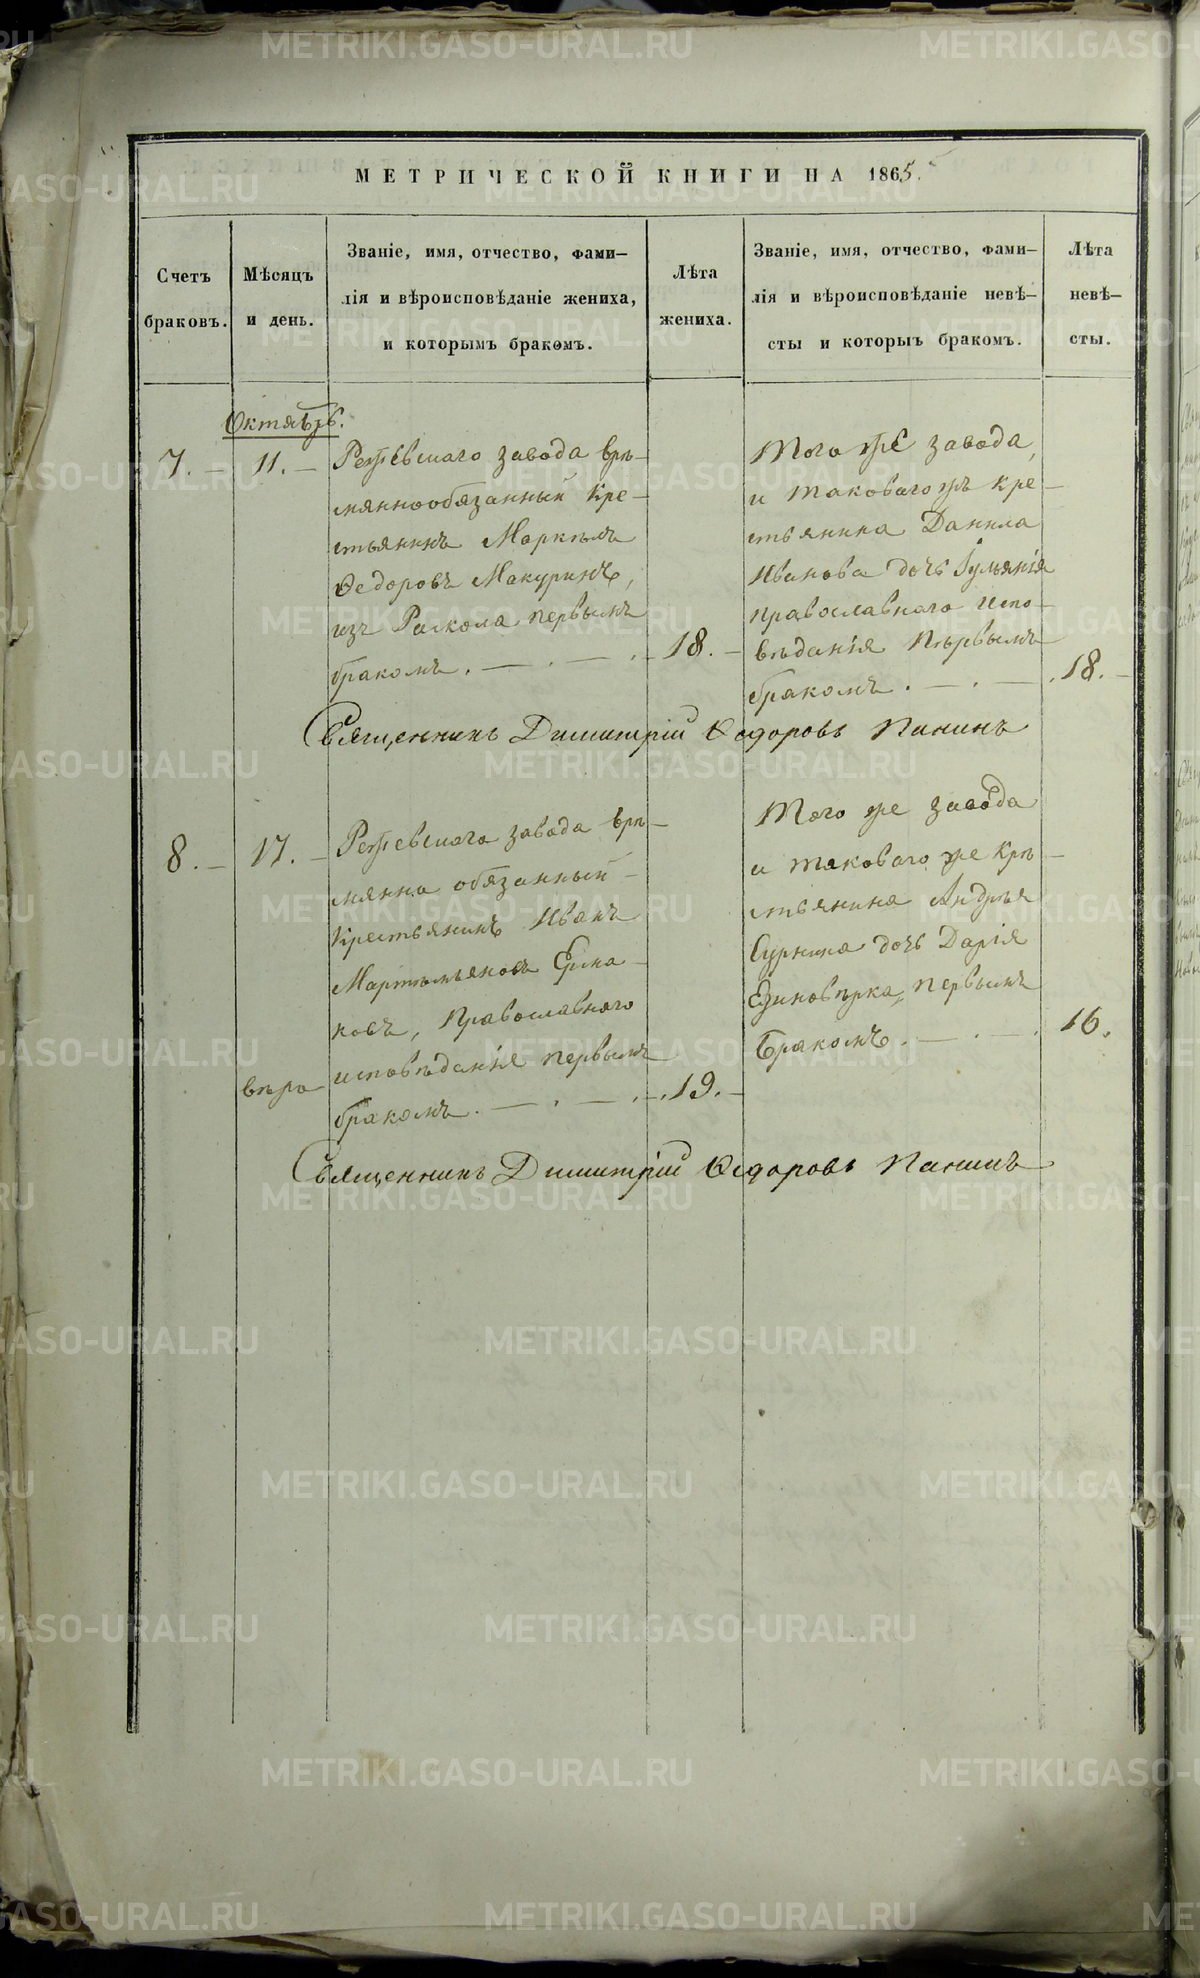 МЕТРИЧЕСКОЙ КНИГИ НА 1865.
Счетъ
браковъ.
Мѣсяцъ
и день.
Званіе, имя, отчество, фами–
лія и вѣроисповѣданіе жениха,
и которымъ бракомъ.
Лѣта
жениха.
Званіе, имя, отчество, фами–
лія и вѣроисповѣданіе невѣ–
сты и которыъ бракомъ.
Лѣта
невѣ–
сты.
Октябрь.
7. – 11. –
Режевскаго завода врѣ–
мяннообязанный Кре–
стьянинъ Маркелъ
Ѳедоровъ Макуринъ,
изъ Раскола первымъ
бракомъ. — . — . – 18. –
Того же завода,
и таковагожъ кре–
стьянина Данила
Иванова дочь Іульянія
православнаго испо–
вѣданія Пѣрвымъ
бракомъ . — . — . 18. –
Священникъ Димитрій Ѳедоровъ Панинъ
8. – 17. –
Режевскаго завода врѣ–
мянно обязанный –
Крестьянинъ Иванъ
Мартемьяновъ Ерма–
ковъ, Православнаго
исповѣданія первымъ
бракомъ. — . — . –. 19. –
вѣро
Того же завода
и таковаго же Крѣ–
стьянина Андрѣя
Сурнина дочь Дарія
Единовѣрка, первымъ
Бракомъ . — . — . 16.
Священникъ Димитрій Ѳедоровъ Панинъ
METRIKI.GASO-URAL.RU